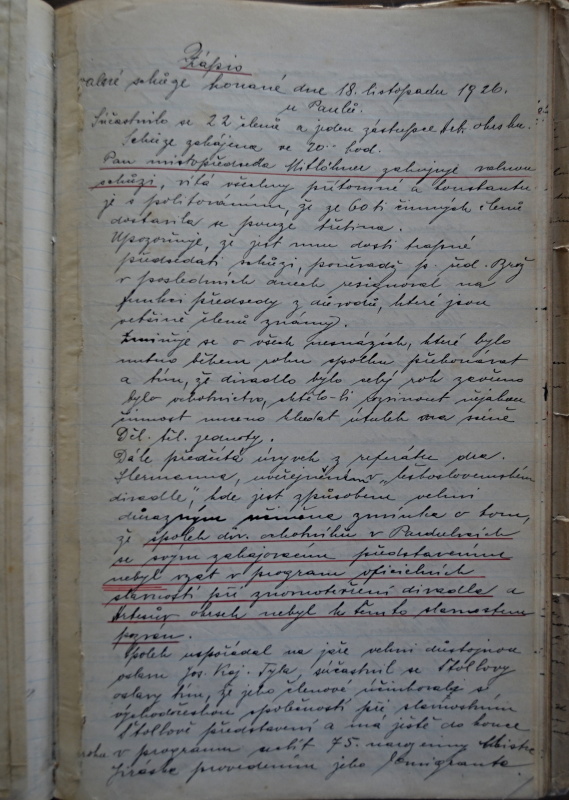 Zápis
valné schůze konané dne 18. listopadu 1926.
u Paulů.
Súčastnilo se 22 členů a jeden zástupce okr. okrsku.
Schůze zahájena ve 20 hod.
Pan místopředseda Mitlöhner zahajuje valnou
schůzi, vítá všechny přítomné a konstatu-
je s politováním, že ze 60ti činných členů
dostavila se pouze třetina.
Upozorňuje, že jest mu dosti trapné
předsedati schůzi, poněvadž p. řed. Brož
v posledních dnech resignoval na
funkci předsedy z důvodů, které jsou
většině členů známy.
Zmiňuje se o všech nesnázích, které bylo
nutno během roku spolku překonávat
a tím, že divadlo bylo celý rok zavřeno
bylo ochotnictvo, chtělo-li rozvinout nějakou
činnost nuceno hledat útulek na scéně
Děl. těl. jednoty.
Dále předčítá úryvek z referátu dra.
Hermanna, uveřejněném v „Československém
divadle“, kde jest způsobem velmi
důrazným zmínka o tom,
že spolek div. ochotníků v Pardubicích
se svým zahajovacím představením
nebyl vzat v program oficielních
slavností při znovuotevření divadla a
okrsek nebyl k těmto slavnostem
pozván.
Spolek uspořádal na jaře velmi důstojnou
oslavu Jos. Kaj. Tyla, súčastnil se Stollovy
oslavy tím, že jeho členové účinkovali s
východočeskou společností při slavnostním
Stollově představení a má ještě do konce
roku v programu uctít 75. narozeniny Mistra
Jiráska provedením jeho Emigranta.